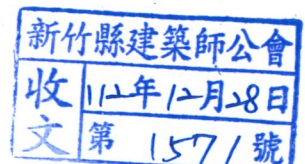 新竹縣建築師公會
收文
112年12月28日
第 1571 號